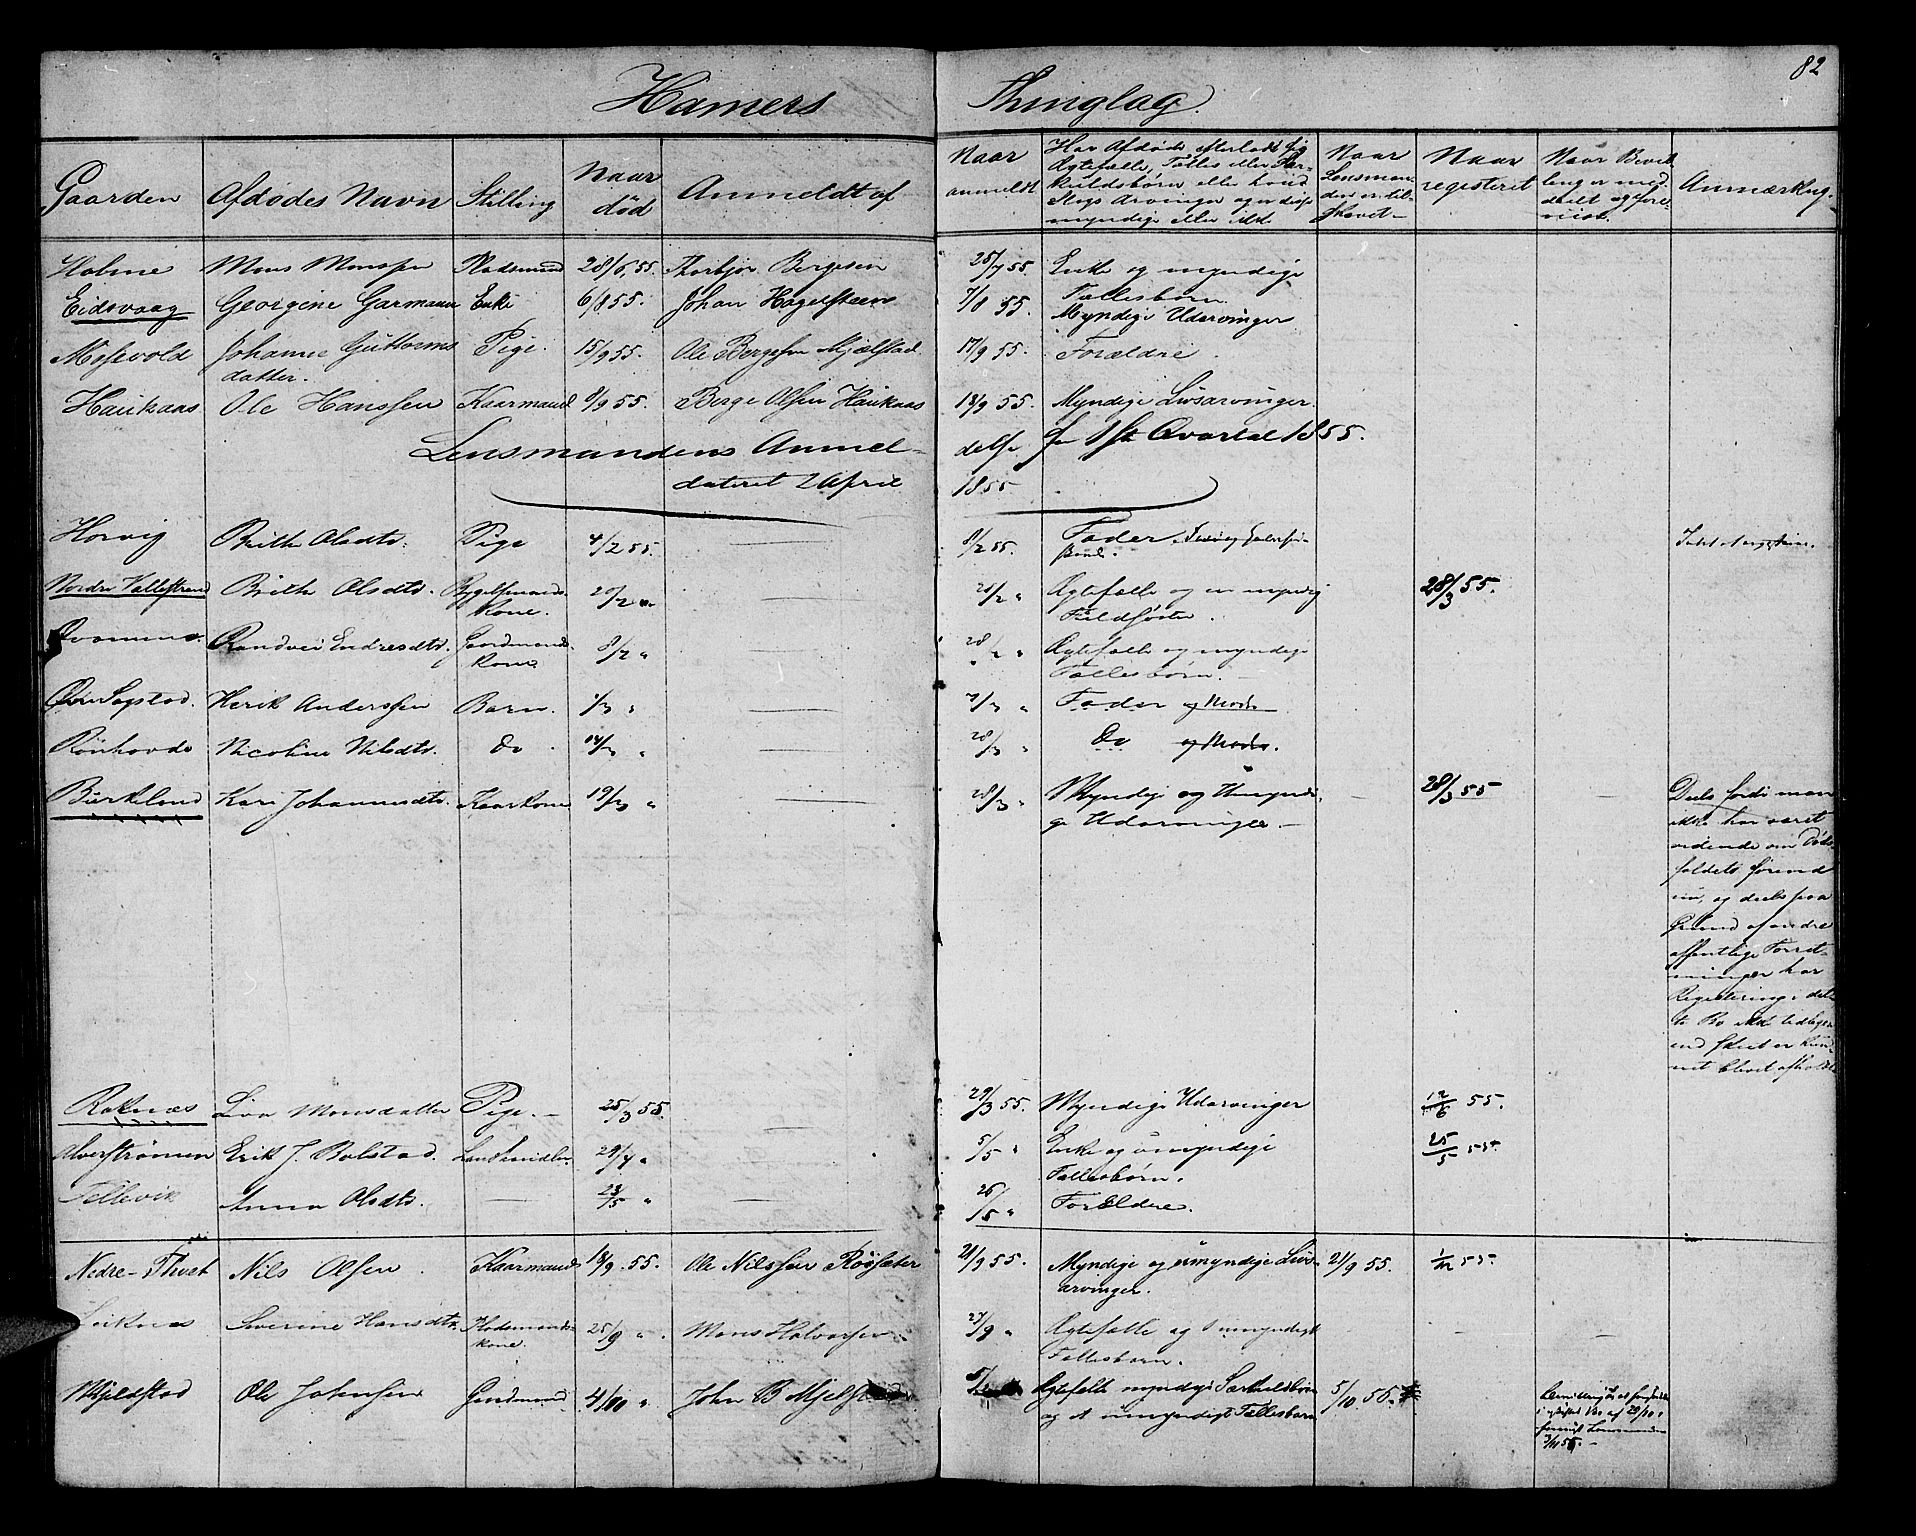 82
Hamers Thinglag.
Gaarden | Afdødes Navn | Stilling | Naar død | Anmeldt af | Naar anmeldt | Har Afdøde efterladt sig Ægtefælle, Fælles eller Særkuldsbørn eller hvad Slags Arvinger og er disse myndige eller ikke | Naar Lensmanden er tilskrevet | Naar registeret | Naar Bevilling er meddeelt og forevist. | Anmærkng.
Holme | Mons Monsen | Pladsmand | 28/6 55. | Thorbjør Bergesen | 25/7 55. | Enke og myndige Fællesbørn.
Eidsvaag | Georgine Garmann | Enke | 6/8 55. | Johan Hagelsteen | 7/8 55. | Myndige Udarvinger
Guttormsdatter. | Pige. | 15/9 55. | Ole Bergesen Mjelstad | 17/9 55. | Forældre.
Haukaas | Ole Hanssen | Kaarmand | 9/9 55. | Berge Olsen Haukaas | 18/9 55. | Myndige Livsarvinger.
Lensmandens Anmeldelse for 1ste Qvartal 1855.
dateret 2 April 1855
Horvig | Brithe Olsdtr. | Pige | 4/2 55. | — | 8/2 55. | Fader.
Nordre Vallestrand | Brithe Olsdtr. | Kone. | 20/2 | Ægtefælle og en myndig
Randvei Endresdtr. | Gaardmands Kone | 8/2 " | 28/2 " | Ægtefælle og myndige Fællesbørn. —
Øvre Sagstad. | Herik Anderssen | Barn. | 1/3 " | — | 7/3 " | Fader og Moder
Rønhovde | Nicoline Nilsdtr. | Do | 14/3 " | — | 28/3 " | Do og Moder.
Birkeland | Kari Johannesdtr. | Kaarkone | 19/3 " | — | 28/3 " | Myndige og Umyndige Udarvinger. — | 28/3 55 | — | Deels fordi man
ikke har været
vidende om Døds-
faldets førend
nu, og deels paa
Grund af andre
offentlige Forret-
ninger har
Registering i det-
te Bo ikke tidliger
end skeet er kun-
net blevet afholdt.
Roknæs | Liva Monsdatter | Pige. — | 25/3 55. | 29/3 55. | Myndige Udarvinger | 12/6 55.
Alverstrømen | Erik J. Bolstad. | Landhandler. | 29/4 " | — | 5/5 " | Enke og umyndige Fællesbørn. | 25/5 55.
Tellevik | Anna Olsdtr. | — | 23/5 " | — | 26/5 " | Forældre.
Nedre-Thvet | Nils Olsen. | Kaarmand | 18/9. 55. | Ole Nilssen Røssæter | 21/9 55. | Myndige og umyndige Livsarvinger. | 21/9 55. | 1/12 55.
Severine Hansdtr. | Pladsmands kone. | 25/9 ". | Mons Halvorsen. | 27/9 " | Ægtefælle og 1 umyndigt Fællesbarn. | — | — | —
Mjeldstad | Ole Johnsen | Gaardmand | 4/10 " | John B Mjelstad | Ægtefelle myndige Særkuldsbørn og et umyndigt Fællesbarn | 5/10 55.